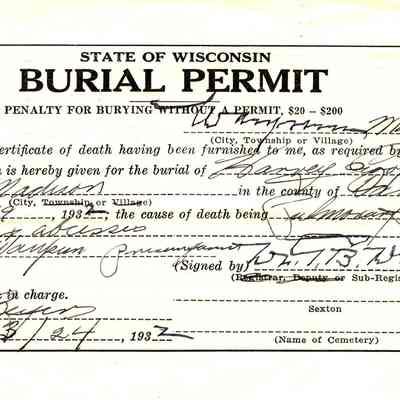 STATE OF WISCONSIN
BURIAL PERMIT
PENALTY FOR BURYING WITHOUT A PERMIT, $20 – $200
(City, Township or Village)
ertificate of death having been furnished to me, as required by
is hereby given for the burial of Harvey
Madison in the county of
(City, Township or Village)
9, 1932, the cause of death being Pulmonary
abscesses
Waupun
(Signed by)
(Registrar, Deputy or Sub-Regis
in charge.
Sexton
3/24, 1932
(Name of Cemetery)